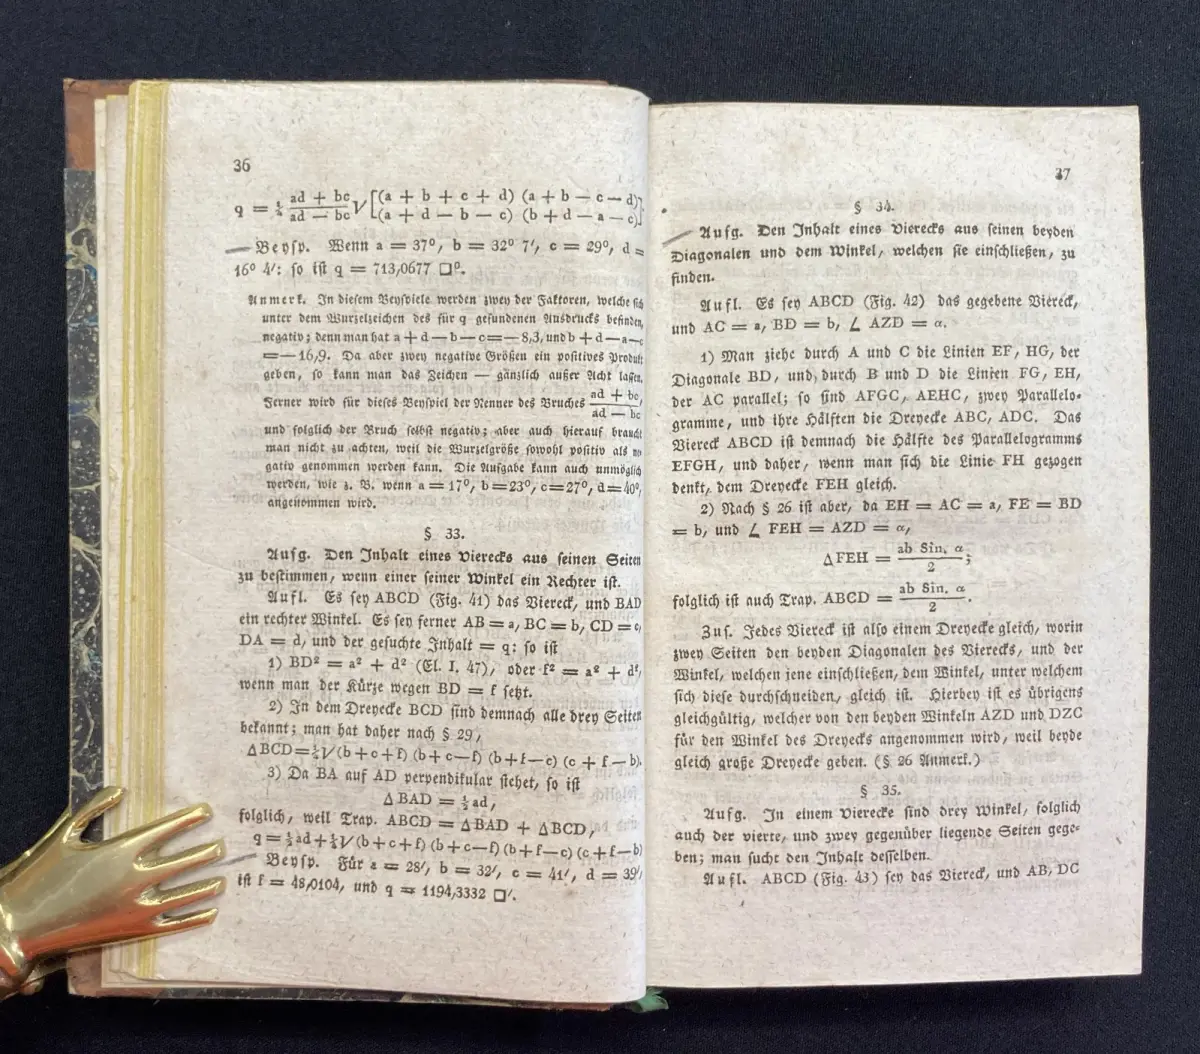 36
q = ¼ (ad + bc)/(ad − bc) √[(a + b + c + d) (a + b − c − d)
(a + d − b − c) (b + d − a − c)]
Beysp. Wenn a = 37⁰, b = 32⁰ 7′, c = 29⁰, d =
16⁰ 4′: so ist q = 713,0677 □⁰.
Anmerk. In diesem Beyspiele werden zwey der Faktoren, welche sich
unter dem Wurzelzeichen des für q gefundenen Ausdrucks befinden,
negativ; denn man hat a + d — b — c = — 8,3, und b + d — a — c
= — 16,9. Da aber zwey negative Größen ein positives Produkt
geben, so kann man das Zeichen — gänzlich außer Acht lassen.
Ferner wird für dieses Beyspiel der Nenner des Bruches (ad + bc)/(ad — bc),
und folglich der Bruch selbst negativ; aber auch hierauf braucht
man nicht zu achten, weil die Wurzelgröße sowohl positiv als ne
gativ genommen werden kann. Die Aufgabe kann auch unmöglich
werden, wie z. B. wenn a = 17⁰, b = 23⁰, c = 27⁰, d = 40⁰,
angenommen wird.
§ 33.
Aufg. Den Inhalt eines Vierecks aus seinen Seiten
zu bestimmen, wenn einer seiner Winkel ein Rechter ist.
Aufl. Es sey ABCD (Fig. 41) das Viereck, und BAD
ein rechter Winkel. Es sey ferner AB = a, BC = b, CD = c,
DA = d, und der gesuchte Inhalt = q: so ist
1) BD² = a² + d² (El. I. 47), oder f² = a² + d²,
wenn man der Kürze wegen BD = f setzt.
2) In dem Dreyecke BCD sind demnach alle drey Seiten
bekannt; man hat daher nach § 29,
△BCD = ¼√(b + c + f) (b + c — f) (b + f — c) (c + f — b).
3) Da BA auf AD perpendikular stehet, so ist
△ BAD = ½ ad,
folglich, weil Trap. ABCD = △BAD + △BCD,
q = ½ ad + ¼√(b + c + f) (b + c — f) (b + f — c) (c + f — b)
Beysp. Für a = 28′, b = 32′, c = 41′, d = 39′,
ist f = 48,0104, und q = 1194,3332 □′.
37
§ 34.
Aufg. Den Inhalt eines Vierecks aus seinen beyden
Diagonalen und dem Winkel, welchen sie einschließen, zu
finden.
Aufl. Es sey ABCD (Fig. 42) das gegebene Viereck,
und AC = a, BD = b, ∠ AZD = α.
1) Man ziehe durch A und C die Linien EF, HG, der
Diagonale BD, und durch B und D die Linien FG, EH,
der AC parallel; so sind AFGC, AEHC, zwey Parallelo-
gramme, und ihre Hälften die Dreyecke ABC, ADC. Das
Viereck ABCD ist demnach die Hälfte des Parallelogramms
EFGH, und daher, wenn man sich die Linie FH gezogen
denkt, dem Dreyecke FEH gleich.
2) Nach § 26 ist aber, da EH = AC = a, FE = BD
= b, und ∠ FEH = AZD = α,
△FEH = (ab Sin. α)/2;
folglich ist auch Trap. ABCD = (ab Sin. α)/2.
Zus. Jedes Viereck ist also einem Dreyecke gleich, worin
zwey Seiten den beyden Diagonalen des Vierecks, und der
Winkel, welchen jene einschließen, dem Winkel, unter welchem
sich diese durchschneiden, gleich ist. Hierbey ist es übrigens
gleichgültig, welcher von den beyden Winkeln AZD und DZC
für den Winkel des Dreyecks angenommen wird, weil beyde
gleich große Dreyecke geben. (§ 26 Anmerk.)
§ 35.
Aufg. In einem Vierecke sind drey Winkel, folglich
auch der vierte, und zwey gegenüber liegende Seiten gege-
ben; man sucht den Inhalt desselben.
Aufl. ABCD (Fig. 43) sey das Viereck, und AB, DC